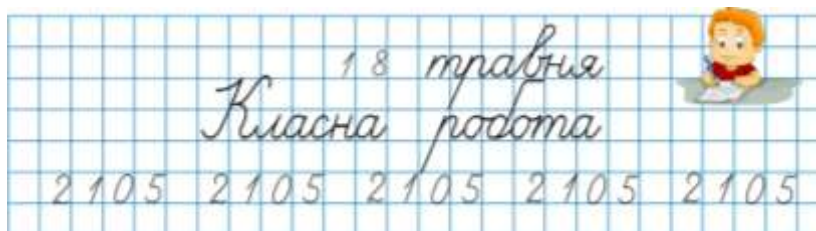 18 травня
Класна робота
2105 2105 2105 2105 2105